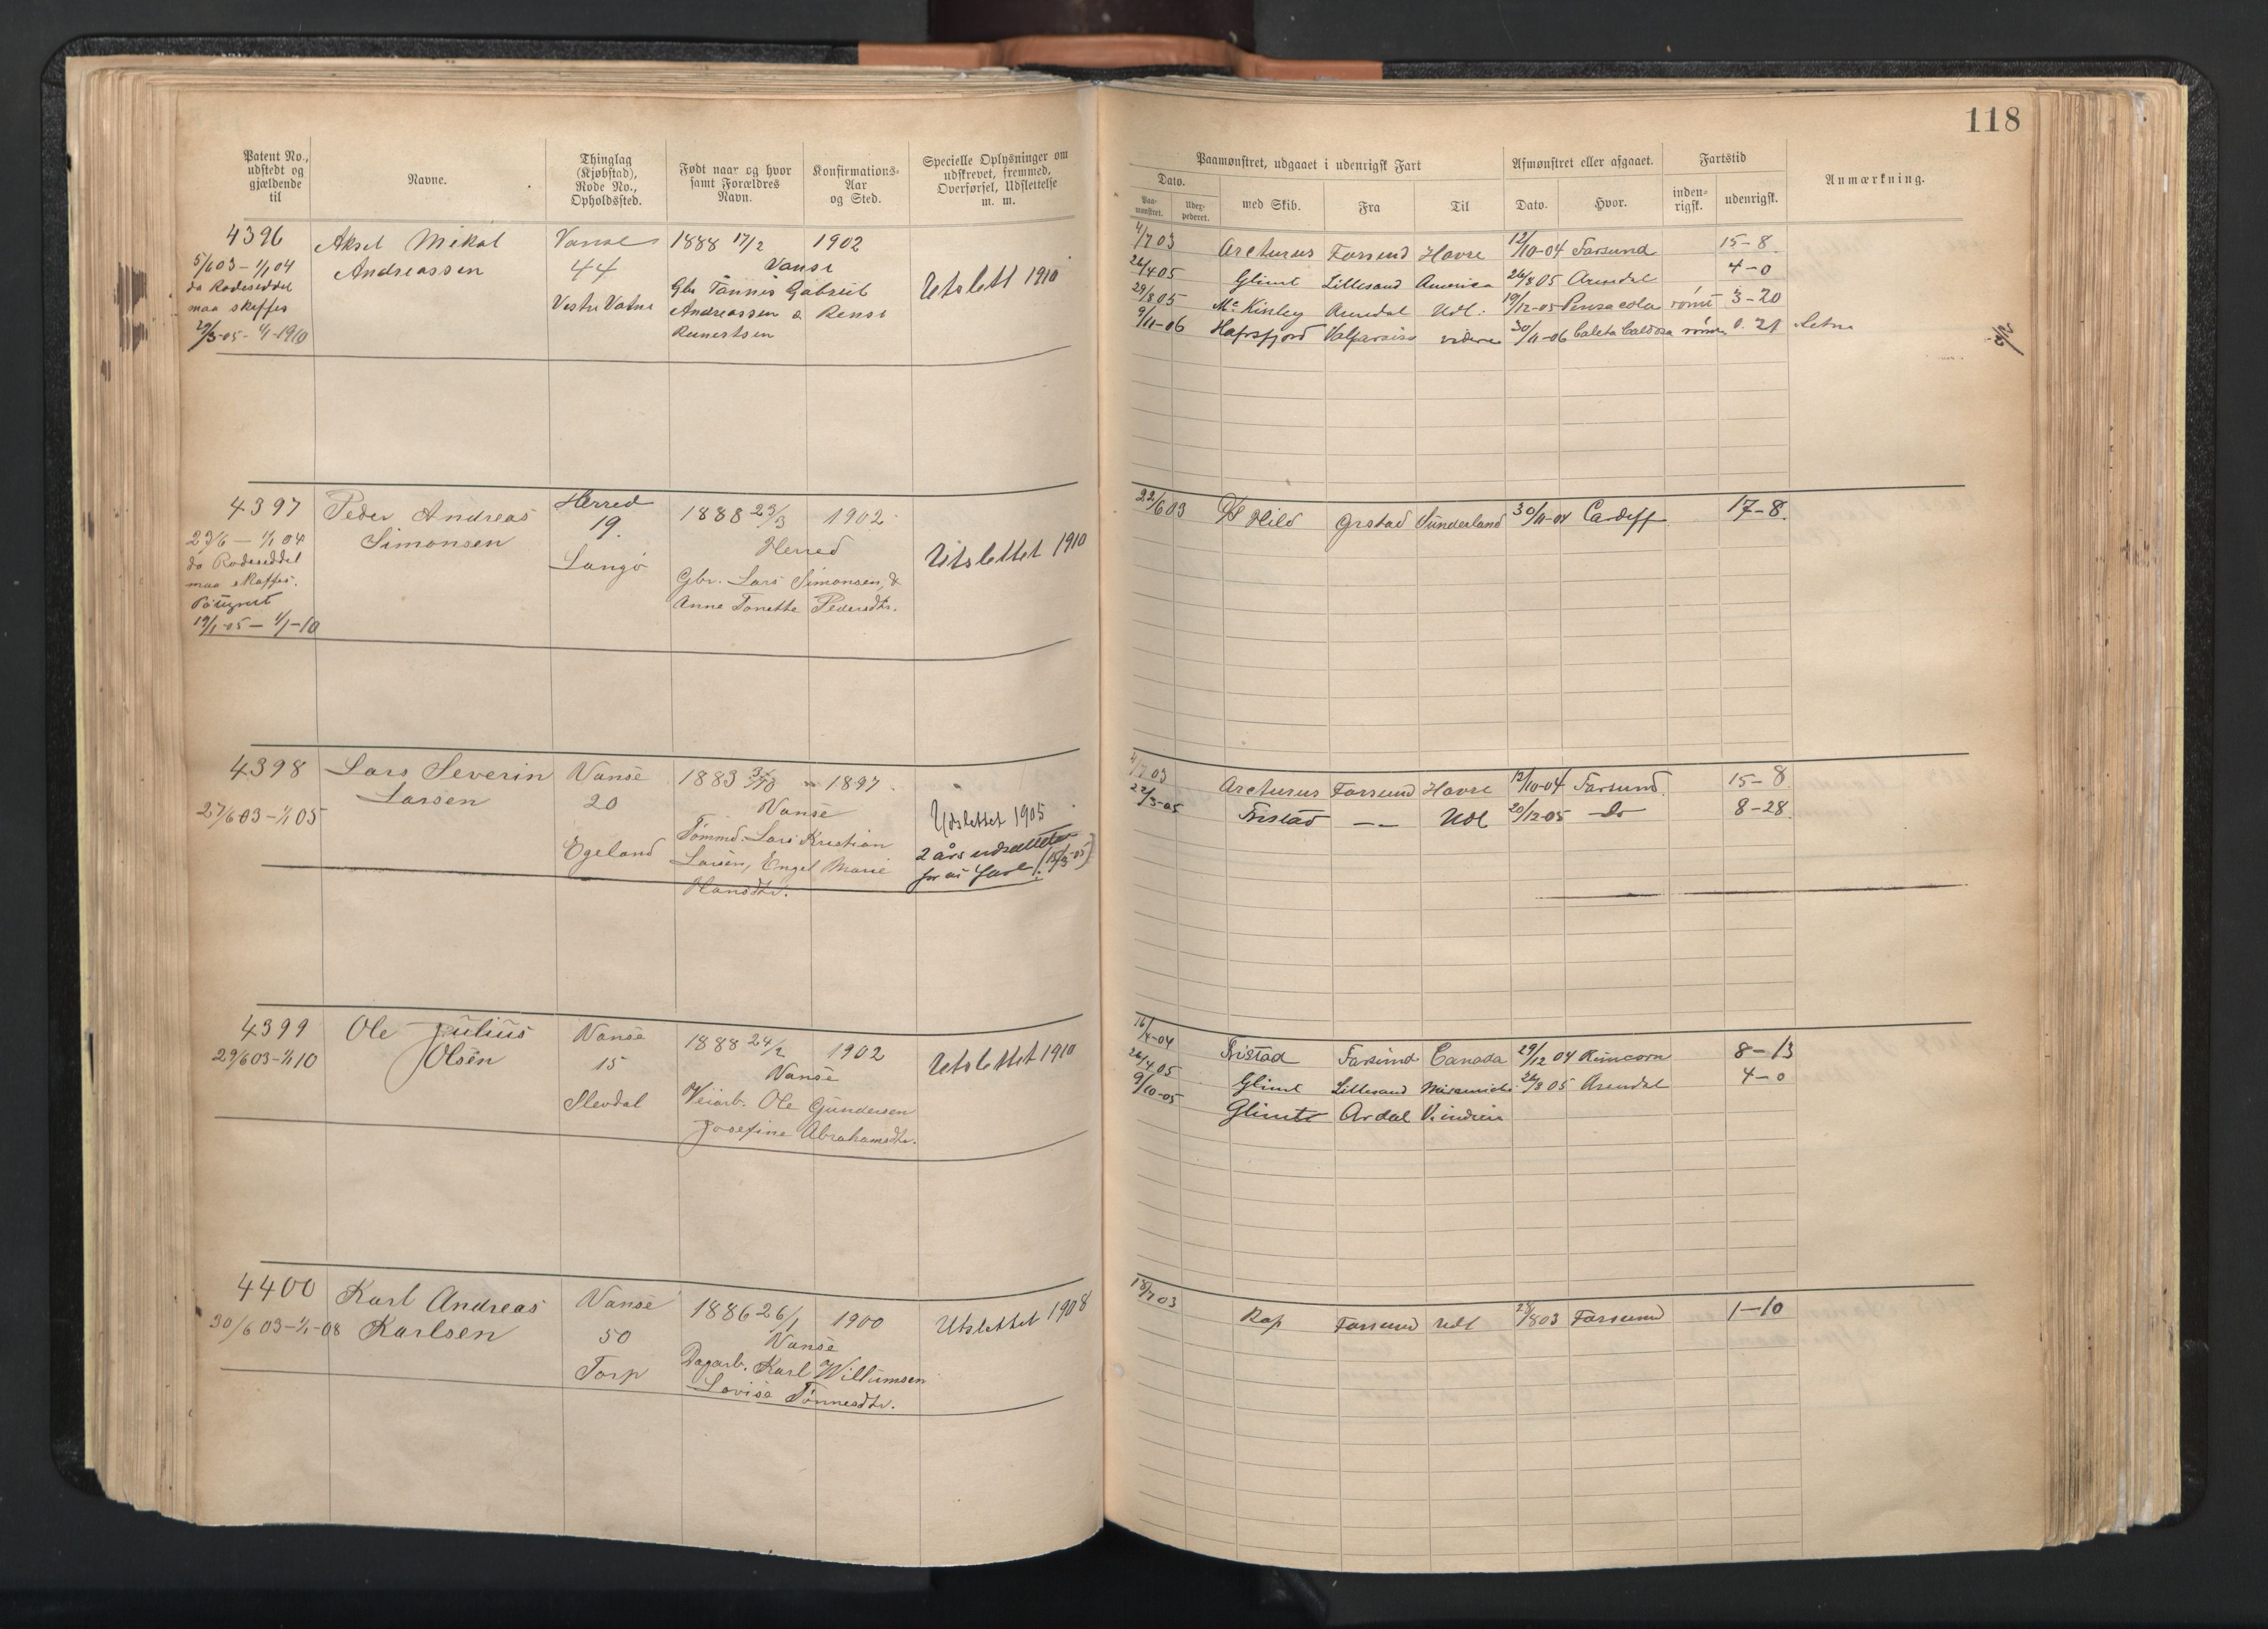 118
Patent No., udstedt og gjældende til
Navne.
Thinglag (Kjøbstad), Rode No., Opholdssted.
Født naar og hvor samt Forældres Navn.
Konfirmations-Aar og Sted.
Specielle Oplysninger om udskrevet, fremmed, Overførsel, Udslettelse m. m.
Paamønstret, udgaaet i udenrigsk Fart
Afmønstret eller afgaaet.
Fartstid
Anmærkning.
Dato.
Paa-mønstret.
Udex-pederet.
med Skib.
Fra
Til
Dato.
Hvor.
inden-rigsk.
udenrigsk.
4396
5/6 03 - 1/1 04
da Rodeseddel
maa skaffes
- 1/1-1910
Aksel Mikal
Andreassen
Vanse
44
Vestre Vatne
1888 17/2 1902
Vanse
Gbr Tønnes Gabriel
Andreassen &
Utslett 1910
4/7 03 Arcturus Farsund Havre 12/10-04 Farsund 15-8
26/4 05 Glimt Lillesand America 26/8 05 Arendal 4-0
29/8 05 Mc Kinley Arendal Udl. 19/12-05 Pensacola rømt 3-20
9/11-06 Hafrsfjord Valparaiso videre 30/11-06 Caleta 0.21
4397
23/6 - 1/1 04
da Rodeseddel
maa skaffes.
19/1-05 - 1/1-10
Peder Andreas
Simonsen
Herred
19.
Langø
1888 23/3 1902
Herred
Gbr. Lars Simonsen, &
Anne Tonette Pedersdtr.
Utslettet 1910
22/6 03 Hild Grstad Sunderland 30/11-04 Cardiff 17-8.
4398
27/6 03 - 1/1 05
Lars Severin
Larsen
Vanse
20
Egeland
1883 1897.
Vanse
Tømmd. Lars Kristian
Larsen, Engel Marie
Hansdtr.
Udslettet 1905
2 års udsættelse
4/7 03 Arcturus Farsund Havre 12/10-04 Farsund. 15-8
22/3-05 Tristad — Udl 20/12-05 do 8-28.
4399
29/6 03 - 1/1 10
Ole Julius
Olsen
Vanse
15
Slevdal
1888 24/2 1902
Vanse
Veiarb. Ole Gundersen
Josefine Abrahamsdtr.
Utslettet 1910
16/4-04 Tristad Farsund Canada 29/12 04 Runcorn 8-13
26/4 05 Glimt Lillesand Miramichi 26/8 05 Arendal 4-0
9/10-05 Glimt Ardal
4400
30/6 03 - 1/1-08
Karl Andreas
Karlsen
Vanse
50
Torp
1886 26/1 1900
Vanse
Dagarb. Karl Willumsen
Lovise Tønnesdtr.
Utslettet 1908
18/7 03 Rap Farsund Udl 28/8 03 Farsund 1-10